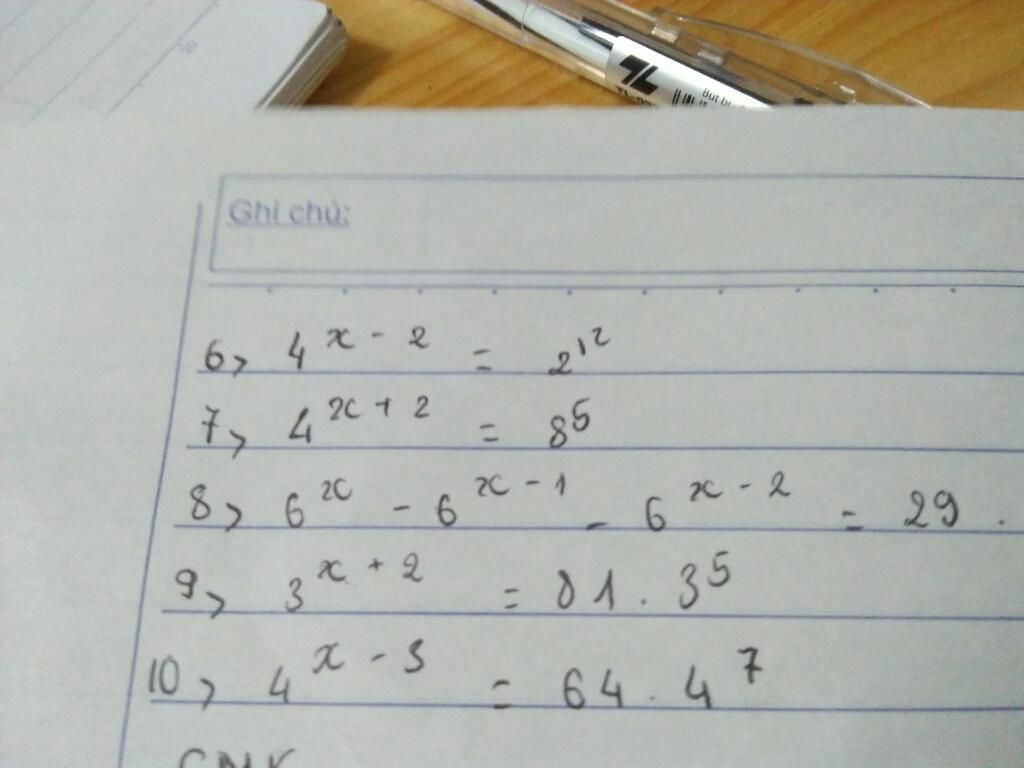 Ghi chú:
6> 4^{x - 2} = 2^{12}
7> 4^{x + 2} = 8^5
8> 6^x - 6^{x - 1} - 6^{x - 2} = 29.
9> 3^{x + 2} = 81 . 3^5
10> 4^{x - 3} = 64 . 4^7